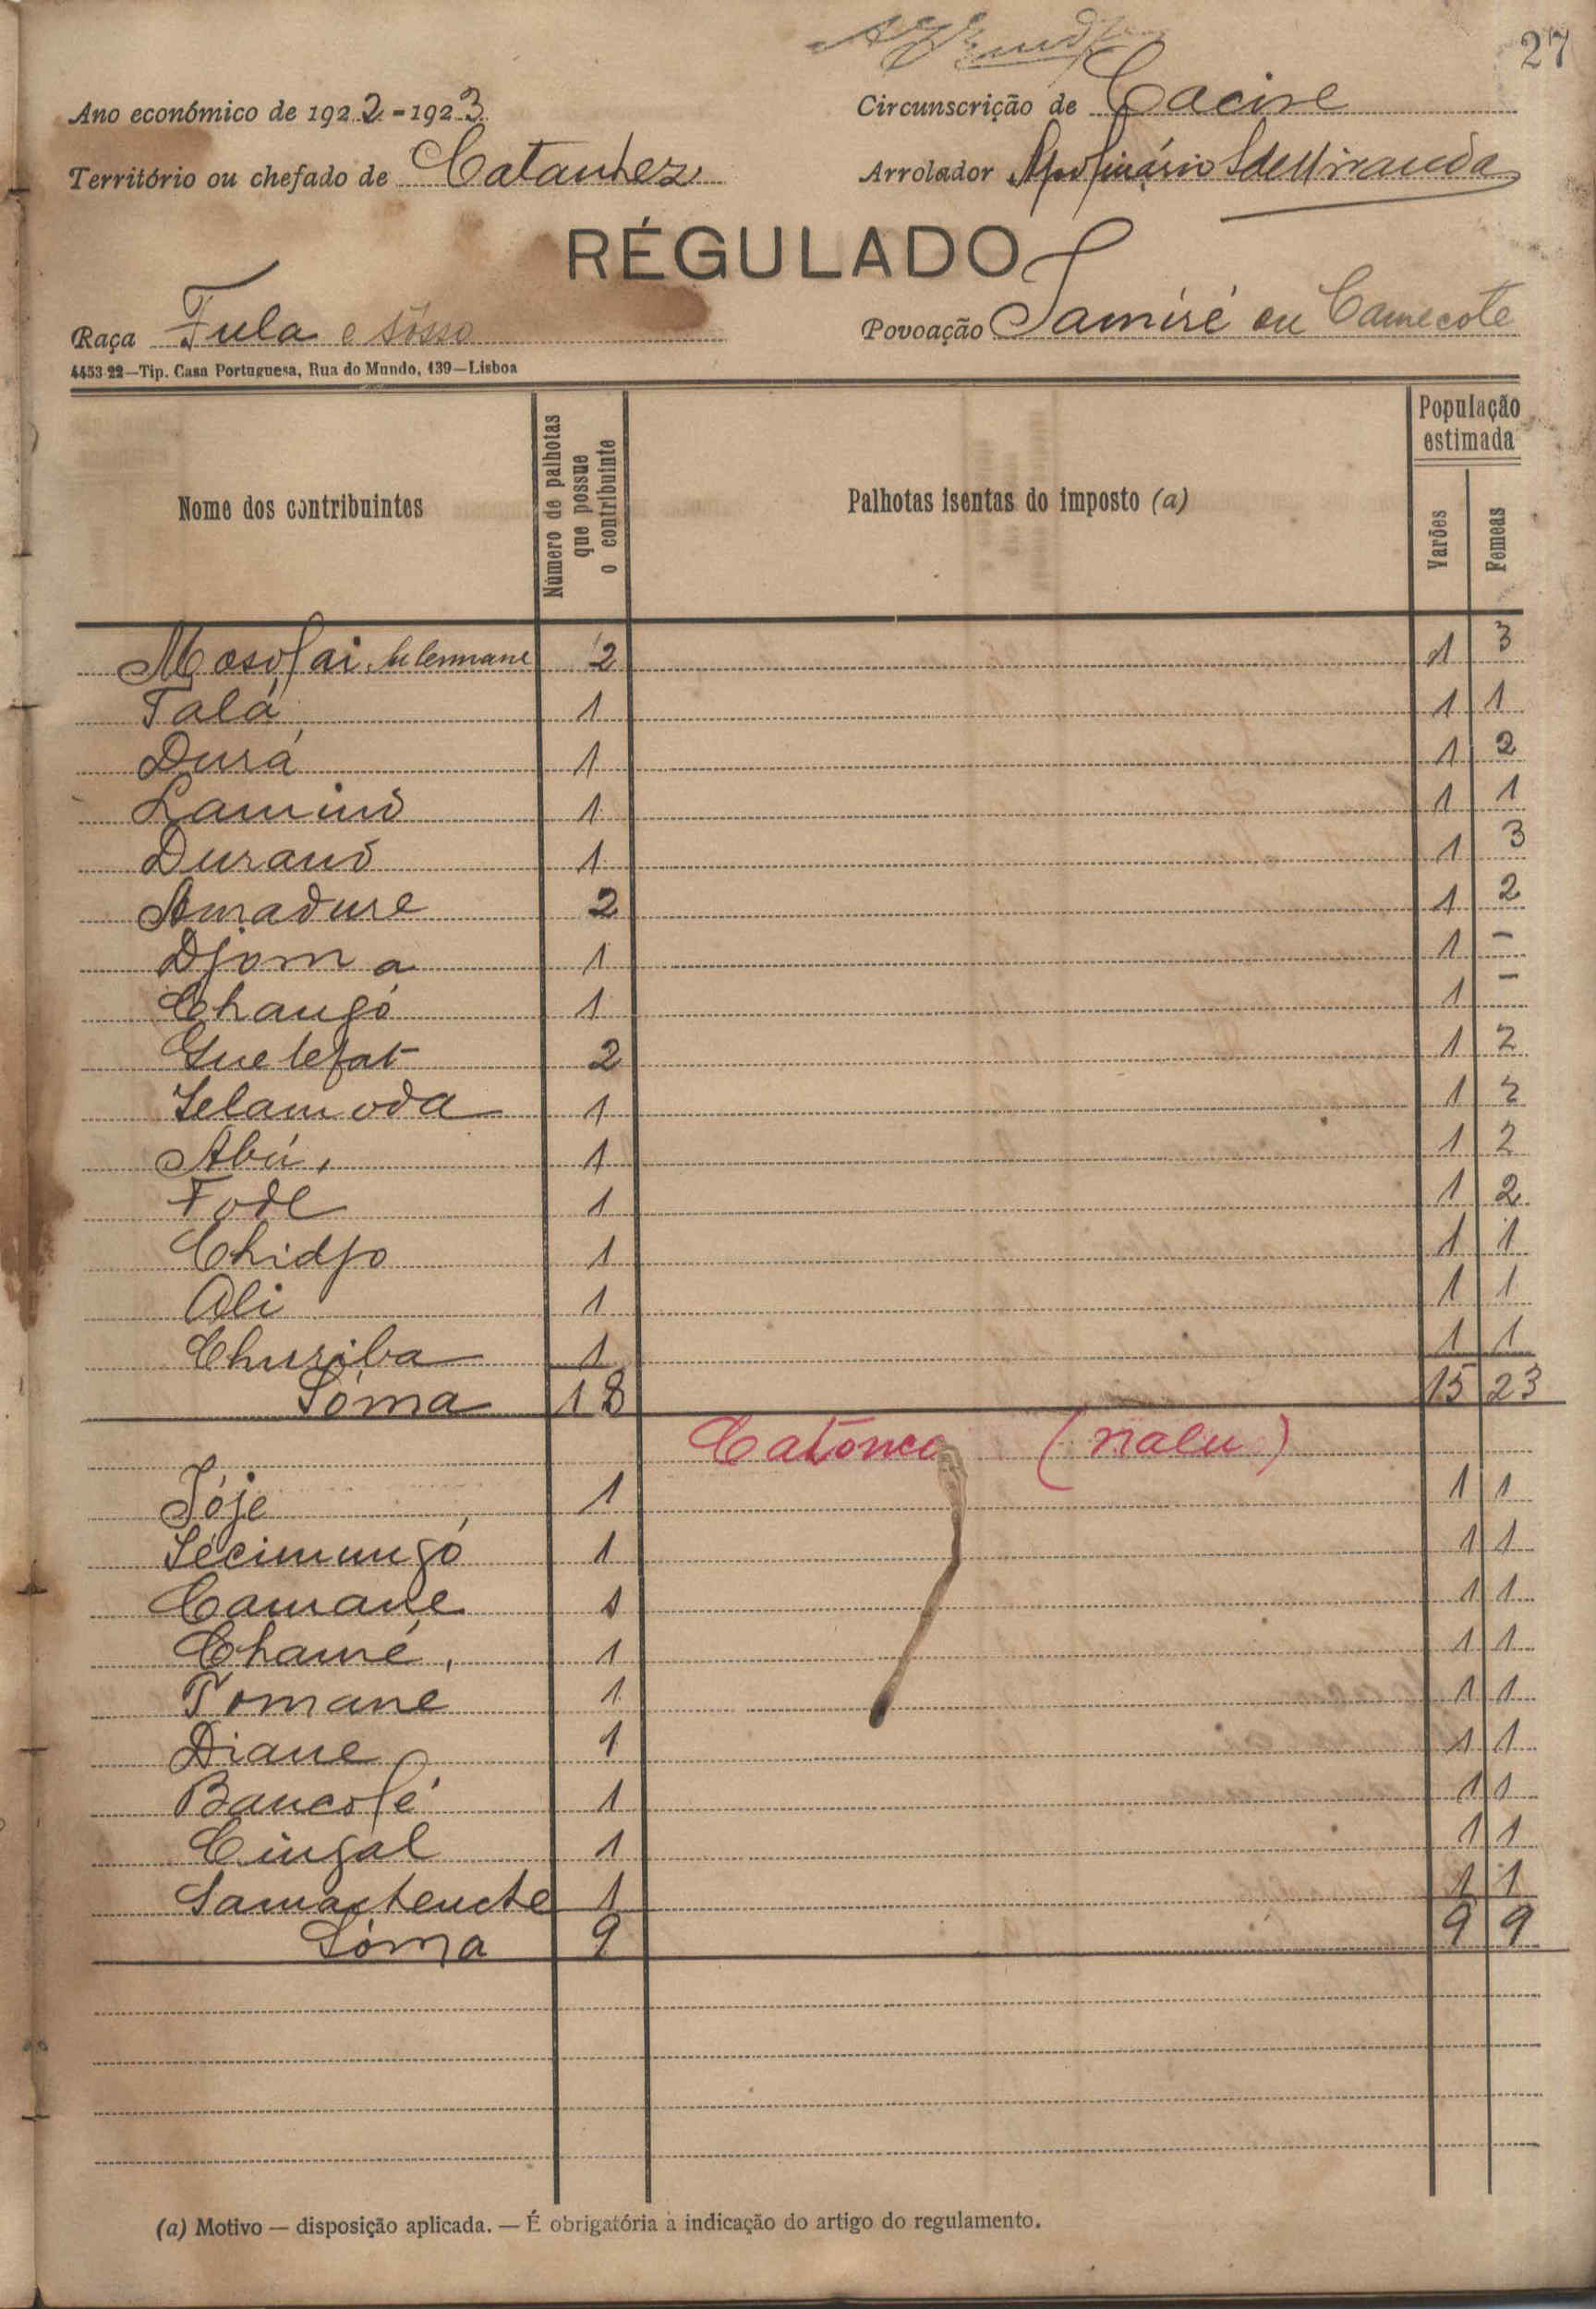 27
Ano económico de 1922-1923
Circunscrição de Cacine
Território ou chefado de Catanhez
Arrolador Apolinário S de Miranda
RÉGULADO
Raça Fula e Sôsso
Povoação Samiré ou Camecote
4453 22—Tip. Casa Portuguesa, Rua do Mundo, 139—Lisboa
Nome dos contribuintes
Número de palhotas que possue o contribuinte
Palhotas isentas do imposto (a)
População estimada
Varões
Femeas
2 1 3
Talá 1 1 1
Durá 1 1 2
Laminó 1 1 1
Duranó 1 1 3
Amadure 2 1 2
Djoma 1 1 -
Changó 1 1 -
Guelefat 2 1 2
Selamoda 1 1 2
Abú, 1 1 2
Fode 1 1 2
Chidjo 1 1 1
Ali 1 1 1
Churiba 1 1 1
Sôma 18 15 23
Catonco (nalu)
Jóje 1 1 1
Sécimungó 1 1 1
Camane 1 1 1
Chamé, 1 1 1
Tomane 1 1 1
Diane 1 1 1
Bancolé 1 1 1
Cingal 1 1 1
1 1 1
Sôma 9 9 9
(a) Motivo — disposição aplicada. — É obrigatória a indicação do artigo do regulamento.